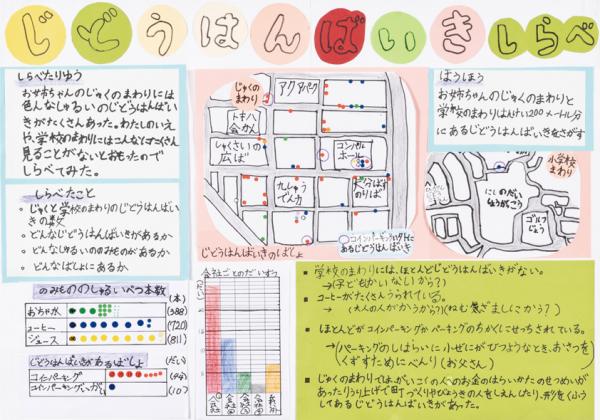 じどうはんばいきしらべ
しらべたりゆう
お姉ちゃんのじゅくのまわりには
色んなしゅるいのじどうはんばい
きがたくさんあった。わたしのいえ
や、学校のまわりにはこんなにたくさん
見ることがないとおもったので
しらべてみた。
しらべたこと
・じゅくと学校のまわりのじどうはんばい
きの数
・どんなじどうはんばいきがあるか
・どんなしゅるいののみものがあるか
・どんなばしょにあるか
のみもののしゅるいべつ本数
(本)
おちゃ・水
(388)
コーヒー
(720)
ジュース
(811)
じどうはんばいきがあるばしょ
(だい)
コインパーキング
じゅくの
まわり
アクアパーク
トキハ
会かん
しゅくさいの
広ば
コンパル
ホール
九しゅう
でん力
大分ばす
のりば
コインパーキングいがいに
あるじどうはんばいき
じどうはんばいきのばしょ
会社ごとのだいすう
(だい)
ほうほう
お姉ちゃんのじゅくのまわりと
学校のまわりはんけい200メートル分
にあるじどうはんばいきをさがす
小学校
まわり
にしのだい
しょうがっこう
ゴルフ
じょう
学校のまわりには、ほとんどじどうはんばいきがない。
→(子どもがいないから?)
コーヒーがたくさんうられている。
→(大人の人がかうから?)(ねむ気ざましにかう?)
ほとんどがコインパーキングかパーキングのちかくにせっちされている。
→(パーキングのしはらいに小ぜにがひつようなとき、おさつを
くずすためにべんり(お父さん)
じゅくのまわりでは、がいこくの人へのお金のはらいかたのせつめいが